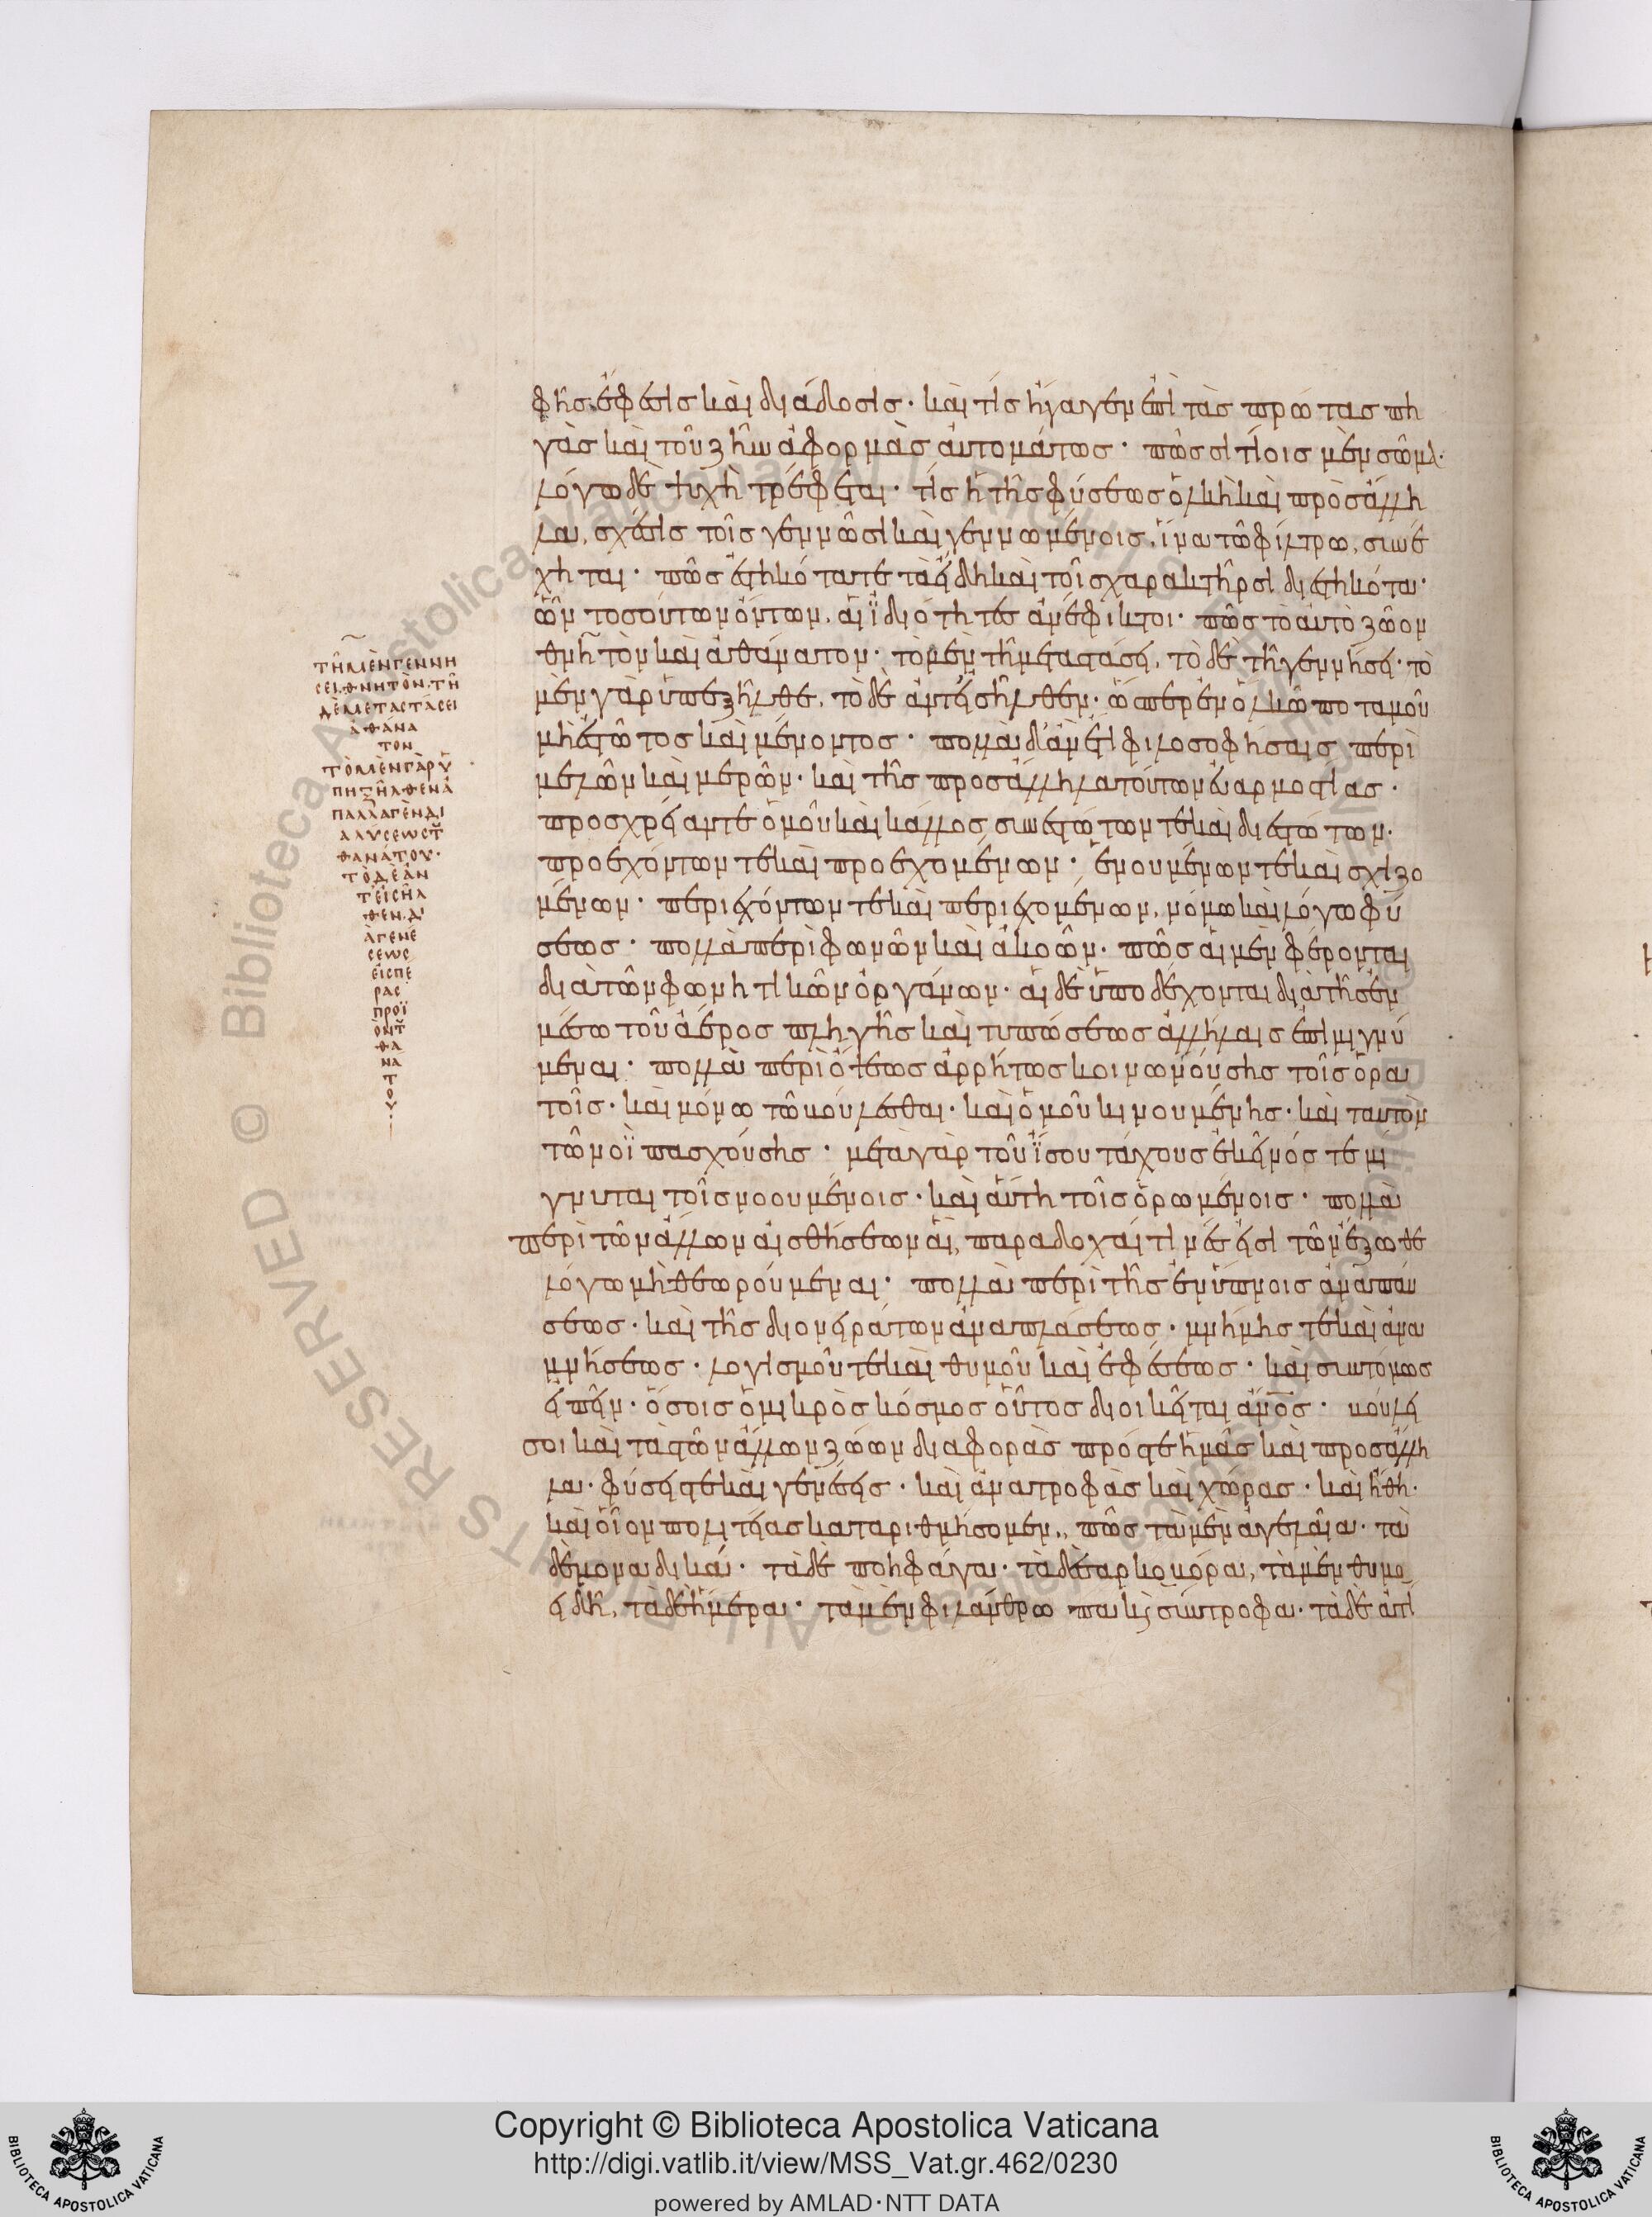 φῆς ἔφεσις καὶ διάδοσις· καὶ τίς ἤγαγεν ἐπὶ τὰς πρώτας πη
γὰς καὶ τοῦ ζῆν ἀφορμὰς αὐτομάτως· πῶς σιτίοις μὲν σῶμα·
λόγω δὲ ψυχὴ τρέφεται· τίς ἡ τῆς φύσεως ὁλκὴ καὶ πρὸς ἄλλη
λα, σχέσις τοῖς γεννῶσι καὶ γεννωμένοις, ἵνα τῶ φίλτρω, συνέ
χηται· πῶς ἑστηκότα τε τὰ εἴδη καὶ τοῖς χαρακτῆρσι διεστηκότα·
ὧν τοσούτων ὄντων, αἱ ἰδιότητες ἀνέφικτοι· πῶς τὸ αὐτὸ ζῶον
θνητὸν καὶ ἀθάνατον· τὸ μὲν τῆ μεταστάσει, τὸ δὲ τῆ γεννήσει· τὸ
μὲν γὰρ ὑπεξῆλθε, τὸ δὲ ἀντεισῆλθεν· ὥσπερ ἐν ὁλκῶ ποταμοῦ
μὴ ἑστῶτος καὶ μένοντος· πολλὰ δ' ἂν ἔτι φιλοσοφήσαις περὶ
μελῶν καὶ μερῶν· καὶ τῆς πρὸς ἄλληλα τούτων εὐαρμοστίας·
πρὸς χρείαν τε ὁμοῦ καὶ κάλλος συνεστώτων τε καὶ διεστώτων·
προεχόντων τε καὶ προεχομένων· ἑνουμένων τε καὶ σχιζο
μένων· περιεχόντων τε καὶ περιεχομένων, νόμω καὶ λόγω φύ
σεως· πολλὰ περὶ φωνῶν καὶ ἀκοῶν· πῶς αἱ μὲν φέρονται
διὰ τῶν φωνητικῶν ὀργάνων· αἱ δὲ ὑποδέχονται διὰ τῆς ἐν
μέσω τοῦ ἀέρος πληγῆς καὶ τυπώσεως ἀλλήλαις ἐπιμιγνύ
μεναι· πολλὰ περὶ ὄψεως ἀρρήτως κοινωνούσης τοῖς ὁρα
τοῖς· καὶ μόνω τῶ βούλεσθαι· καὶ ὁμοῦ κινουμένης· καὶ ταυτὸν
τῶ νοῒ πασχούσης· μετὰ γὰρ τοῦ ἴσου τάχους ἐκεῖνός τε μί
γνυται τοῖς νοουμένοις· καὶ αὕτη τοῖς ὁρωμένοις· πολλὰ
περὶ τῶν ἄλλων αἰσθήσεων αἳ, παραδοχαί τινές εἰσι τῶν ἔξωθε
λόγω μὴ θεωρούμεναι· πολλὰ περὶ τῆς ἐν ὕπνοις ἀναπαύ
σεως· καὶ τῆς δι ὀνειράτων ἀναπλάσεως· μνήμης τε καὶ ἀνα
μνήσεως· λογισμοῦ τε καὶ θυμοῦ καὶ ἐφέσεως· καὶ συντόμως
εἰπεῖν· ὅσοις ὁ μικρὸς κόσμος οὗτος διοικεῖται ἄνος· βούλει
σοι καὶ τὰς τῶν ἄλλων ζώων διαφορὰς πρός τε ἡμᾶς καὶ πρὸς ἄλλη
λα· φύσεις τε καὶ γενέσεις· καὶ ἀνατροφὰς καὶ χώρας· καὶ ἤθη·
καὶ οἷον πολιτείας καταριθμήσομεν, πῶς τὰ μὲν ἀγελαῖα· τὰ
δὲ μοναδικά· τὰ δὲ ποηφάγα· τὰ δὲ σαρκοβόρα, τὰ μὲν θυμο
ειδῆ, τὰ δὲ ἥμερα· τὰ μὲν φιλάνθρωπα κ(αὶ) σύντροφα· τὰ δὲ ἀτι
ΤΗ͂ ΜῈΝ ΓΕΝΝΗ
ΣΕΙ, ΘΝΗΤῸΝ· ΤΗ͂
ΔῈ ΜΕΤΑΣΤΆΣΕΙ
ἈΘΆΝΑ
ΤΟΝ
ΤῸ ΜῈΝ ΓᾺΡ Ὑ
ΠΕΞΗ͂ΛΘΕΝ Ἀ
ΠΑΛΛΑΓῈΝ ΔΙ
ΑΛΎΣΕΩΣ Τ(ΟΥ͂)
ΘΑΝΆΤΟΥ·
ΤῸ ΔῈ ἈΝ
ΤΕΙΣΗ͂Λ
ΘΕΝ, ΔΙ
Ὰ ΓΕΝΈ
ΣΕΩΣ
ΕἸΣ ΠΈ
ΡΑΣ
ΠΡΟΪ
ῸΝ Τ(ΟΥ͂)
ΘΑ
ΝΆ
Τ
Ο
Υ
Copyright © Biblioteca Apostolica Vaticana
http://digi.vatlib.it/view/MSS_Vat.gr.462/0230
powered by AMLAD·NTT DATA
BIBLIOTECA APOSTOLICA VATICANA
BIBLIOTECA APOSTOLICA VATICANA